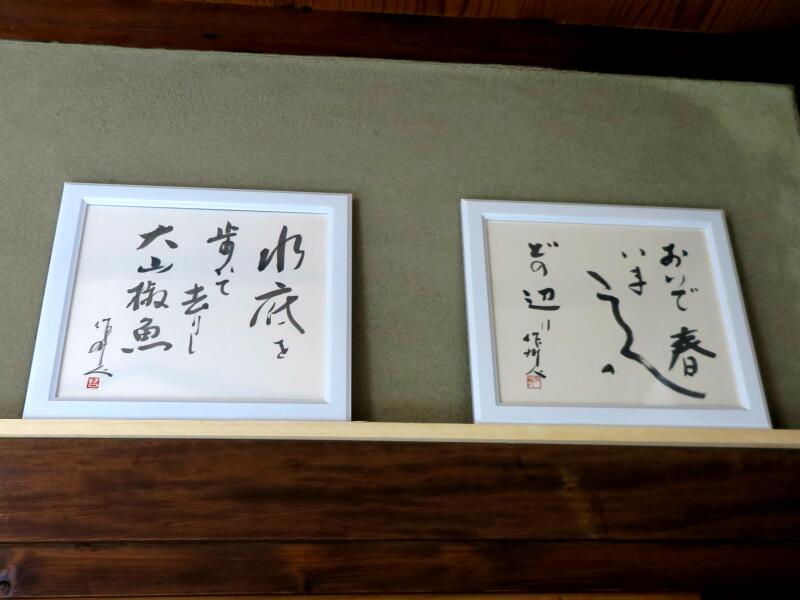 水底を
歩いて
去りし
大山椒魚
作州人
おいで春
いま道の
どの辺り
作州人